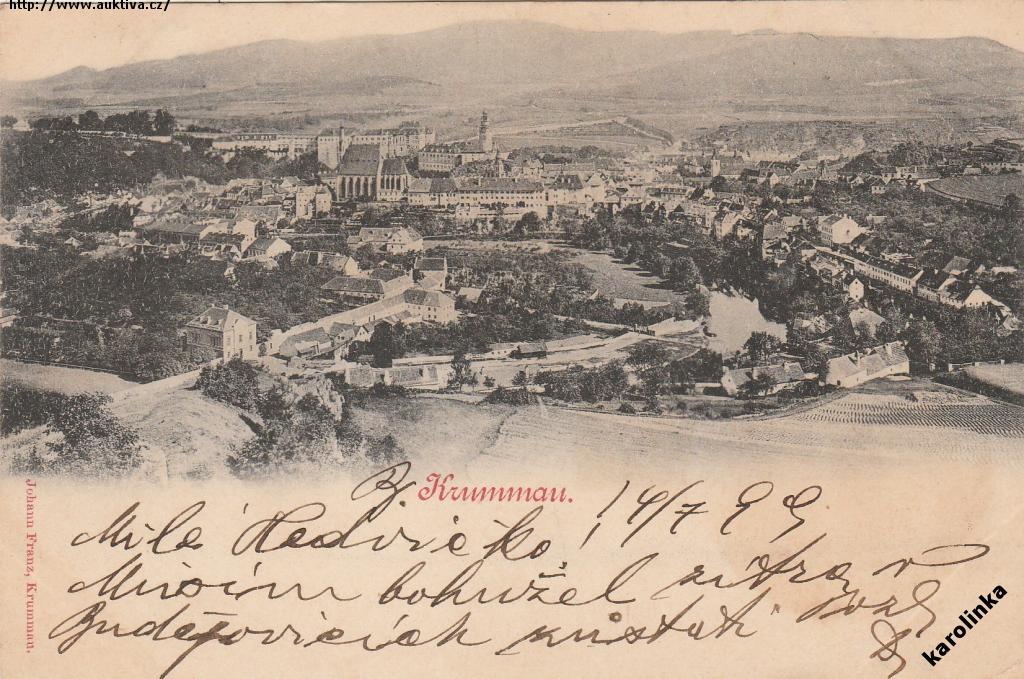 http://www.auktiva.cz/
Krummau.
14/7 99
Milá Hedvičko!
Musím bohužel zítra v
Budějovicích zůstati
Johann Franz, Krummau.
karolinka